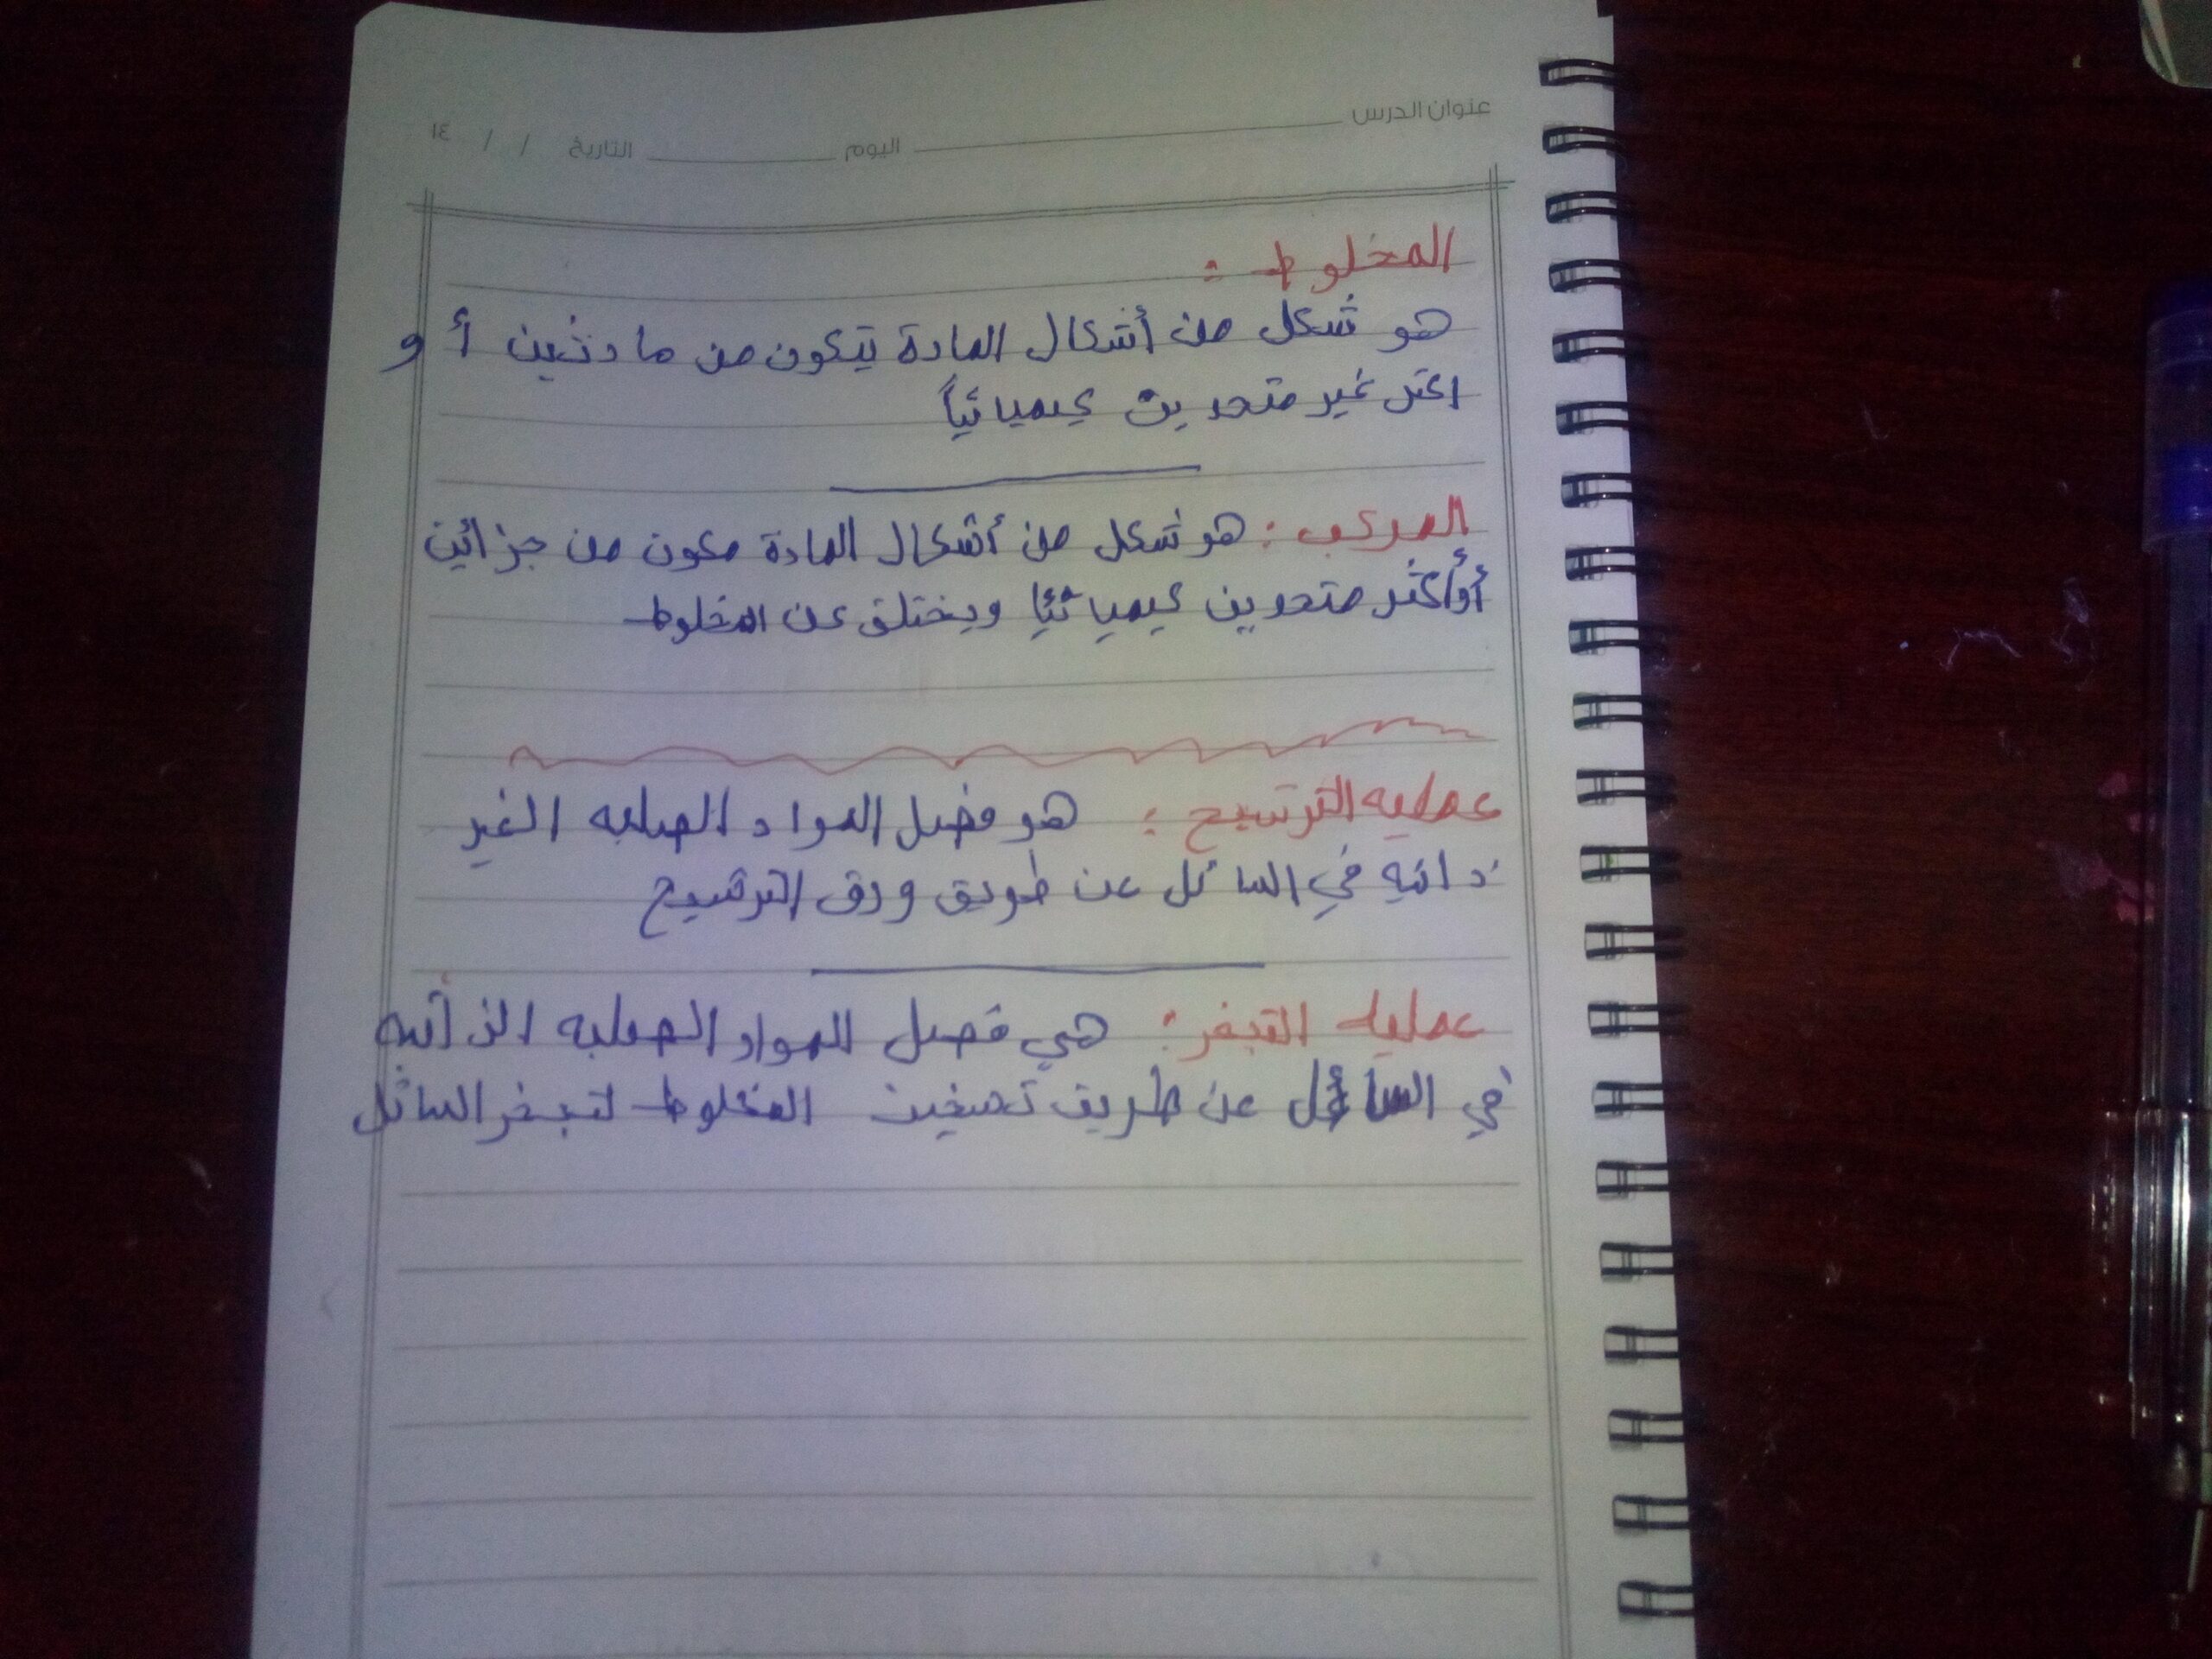 عنوان الدرس اليوم التاريخ / / ١٤
المخلوط :
هو شكل من أشكال المادة يتكون من مادتين أو
اكثر غير متحدين كيميائياً
المركب : هو شكل من أشكال المادة مكون من جزائين
أو أكثر متحدين كيميائيًا ويختلف عن المخلوط
عمليه الترشيح : هو فصل المواد الصلبه الغير
ذائبه في السائل عن طريق ورق الترشيح
عمليه التبخر : هي فصل المواد الصلبه الذائبه
في السائل عن طريق تسخين المخلوط لتبخر السائل